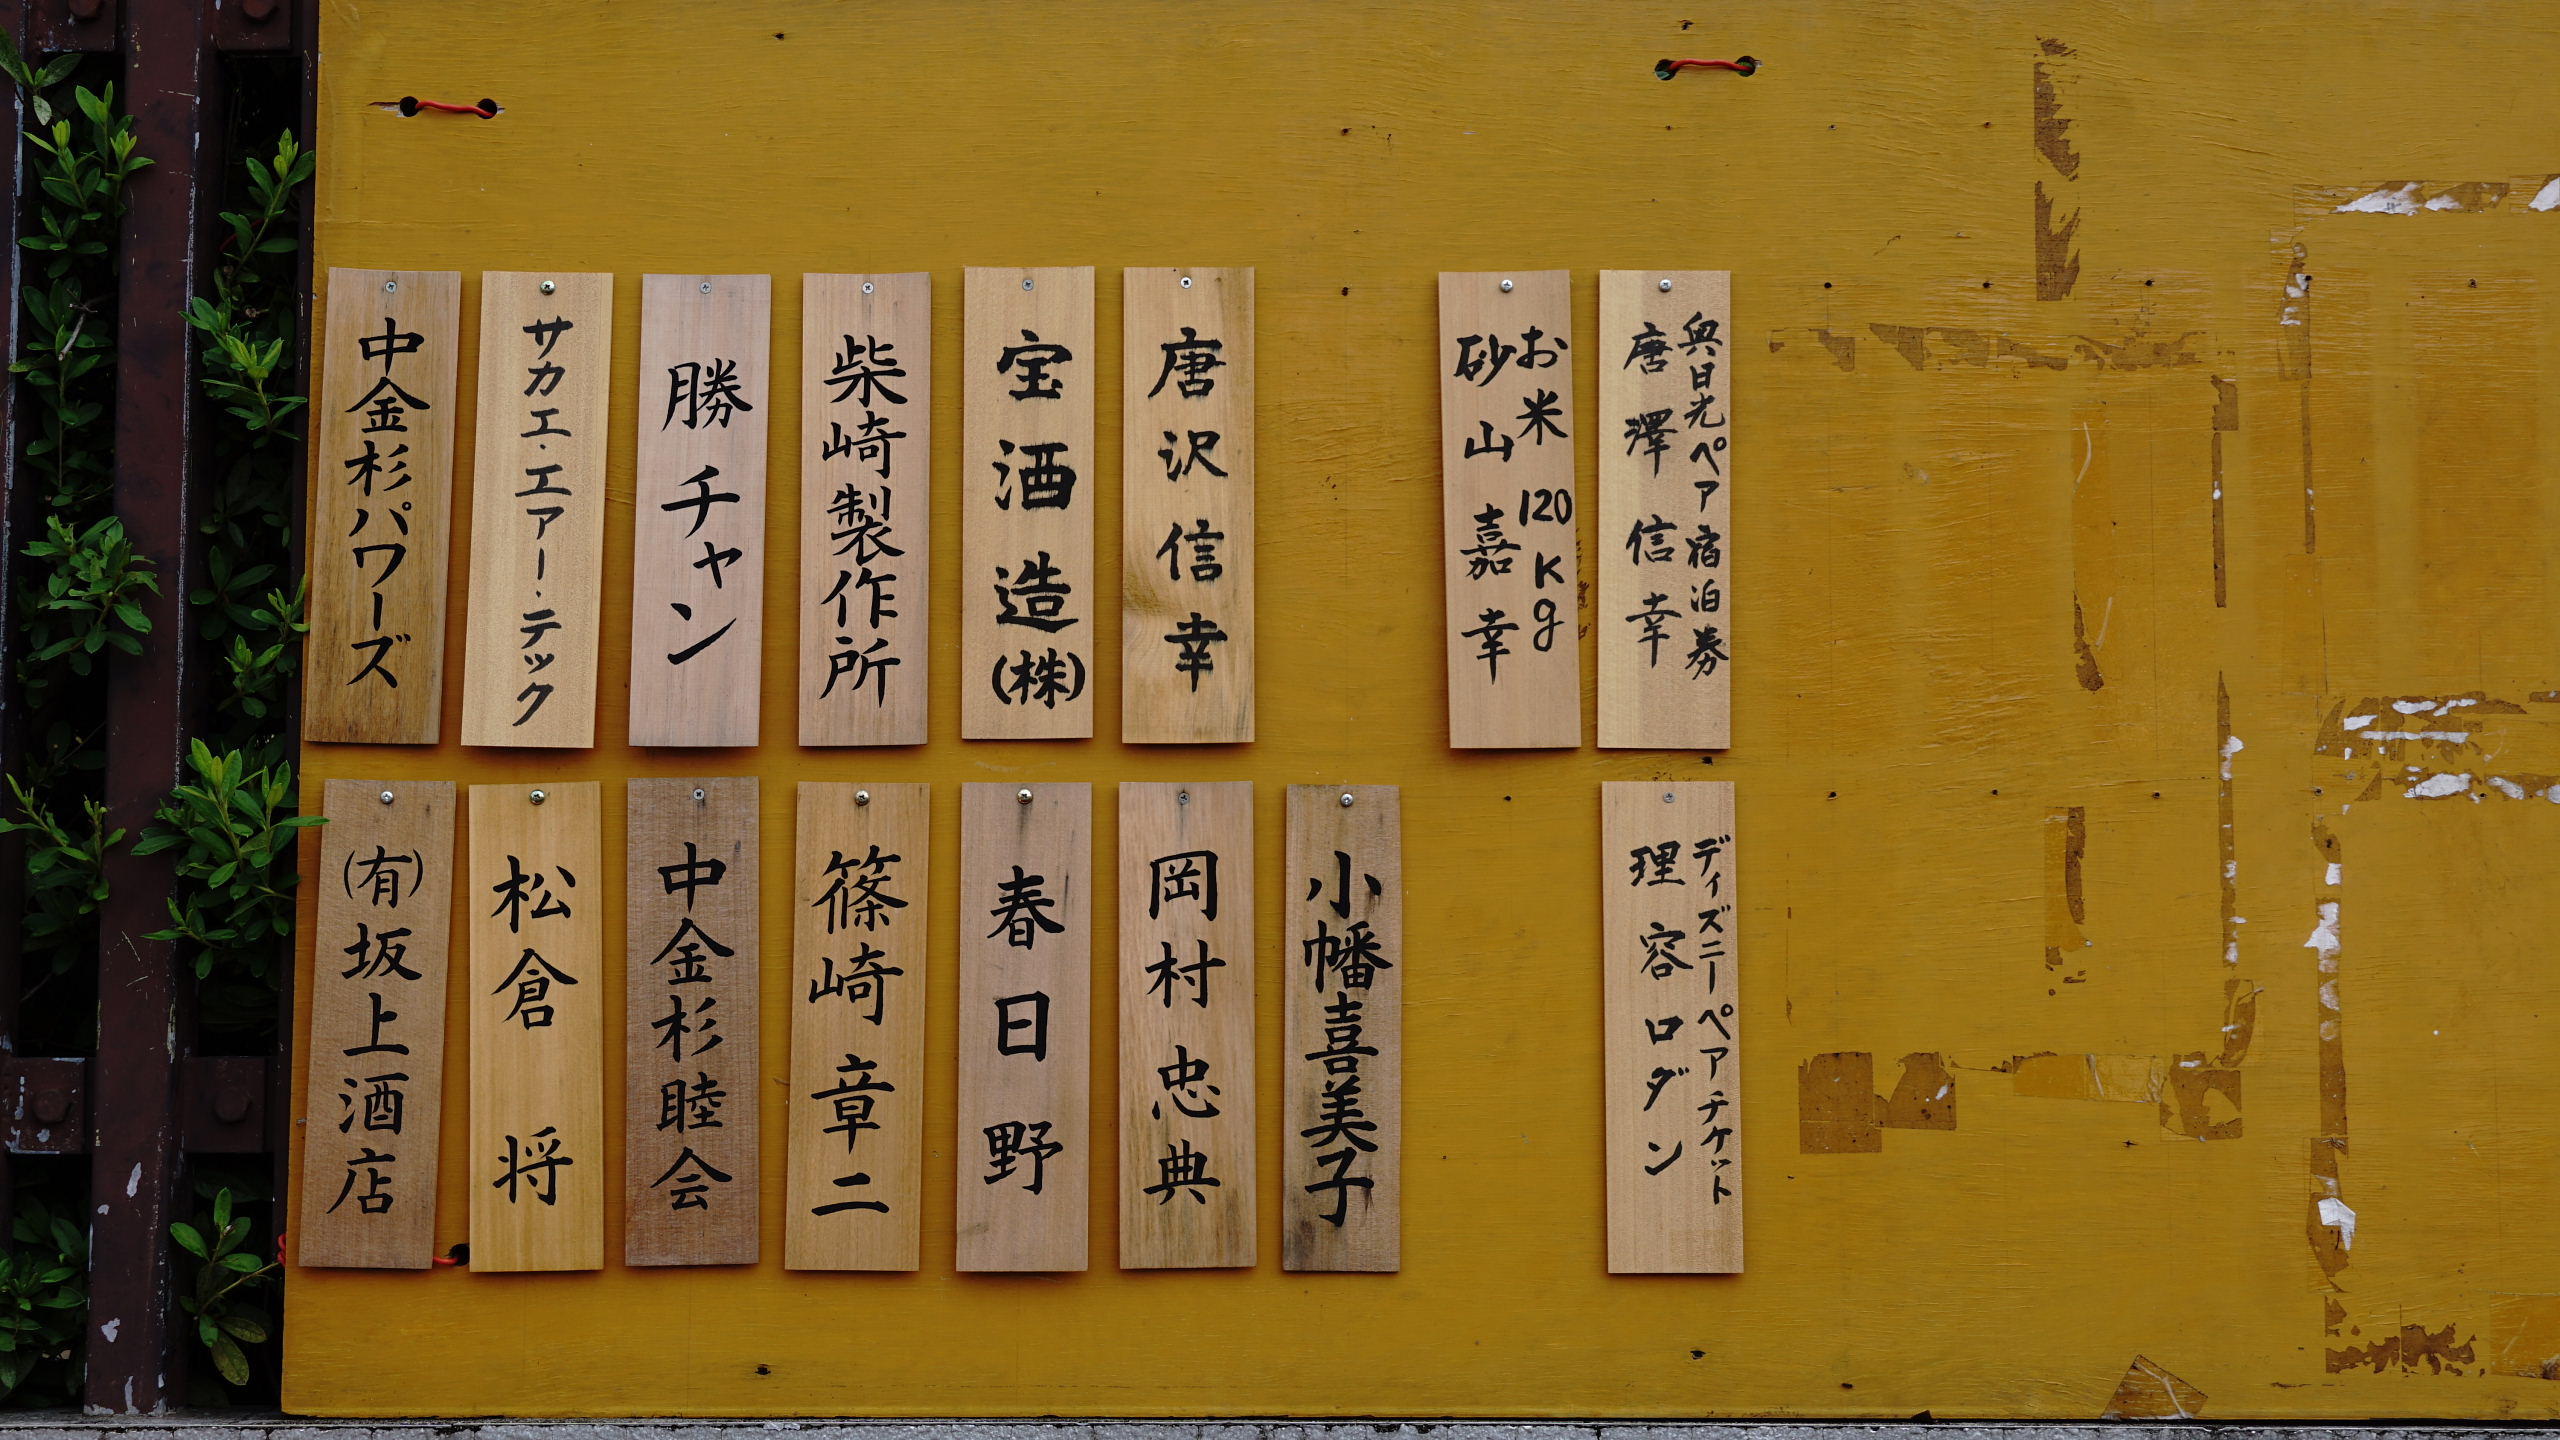 奥日光ペア宿泊券
唐澤信幸
お米120Kg
砂山嘉幸
唐沢信幸
宝酒造(株)
柴崎製作所
勝チャン
サカエ・エアー・テック
中金杉パワーズ
ディズニーペアチケット
理容ロダン
小幡喜美子
岡村忠典
春日野
篠崎章二
中金杉睦会
松倉将
(有)坂上酒店